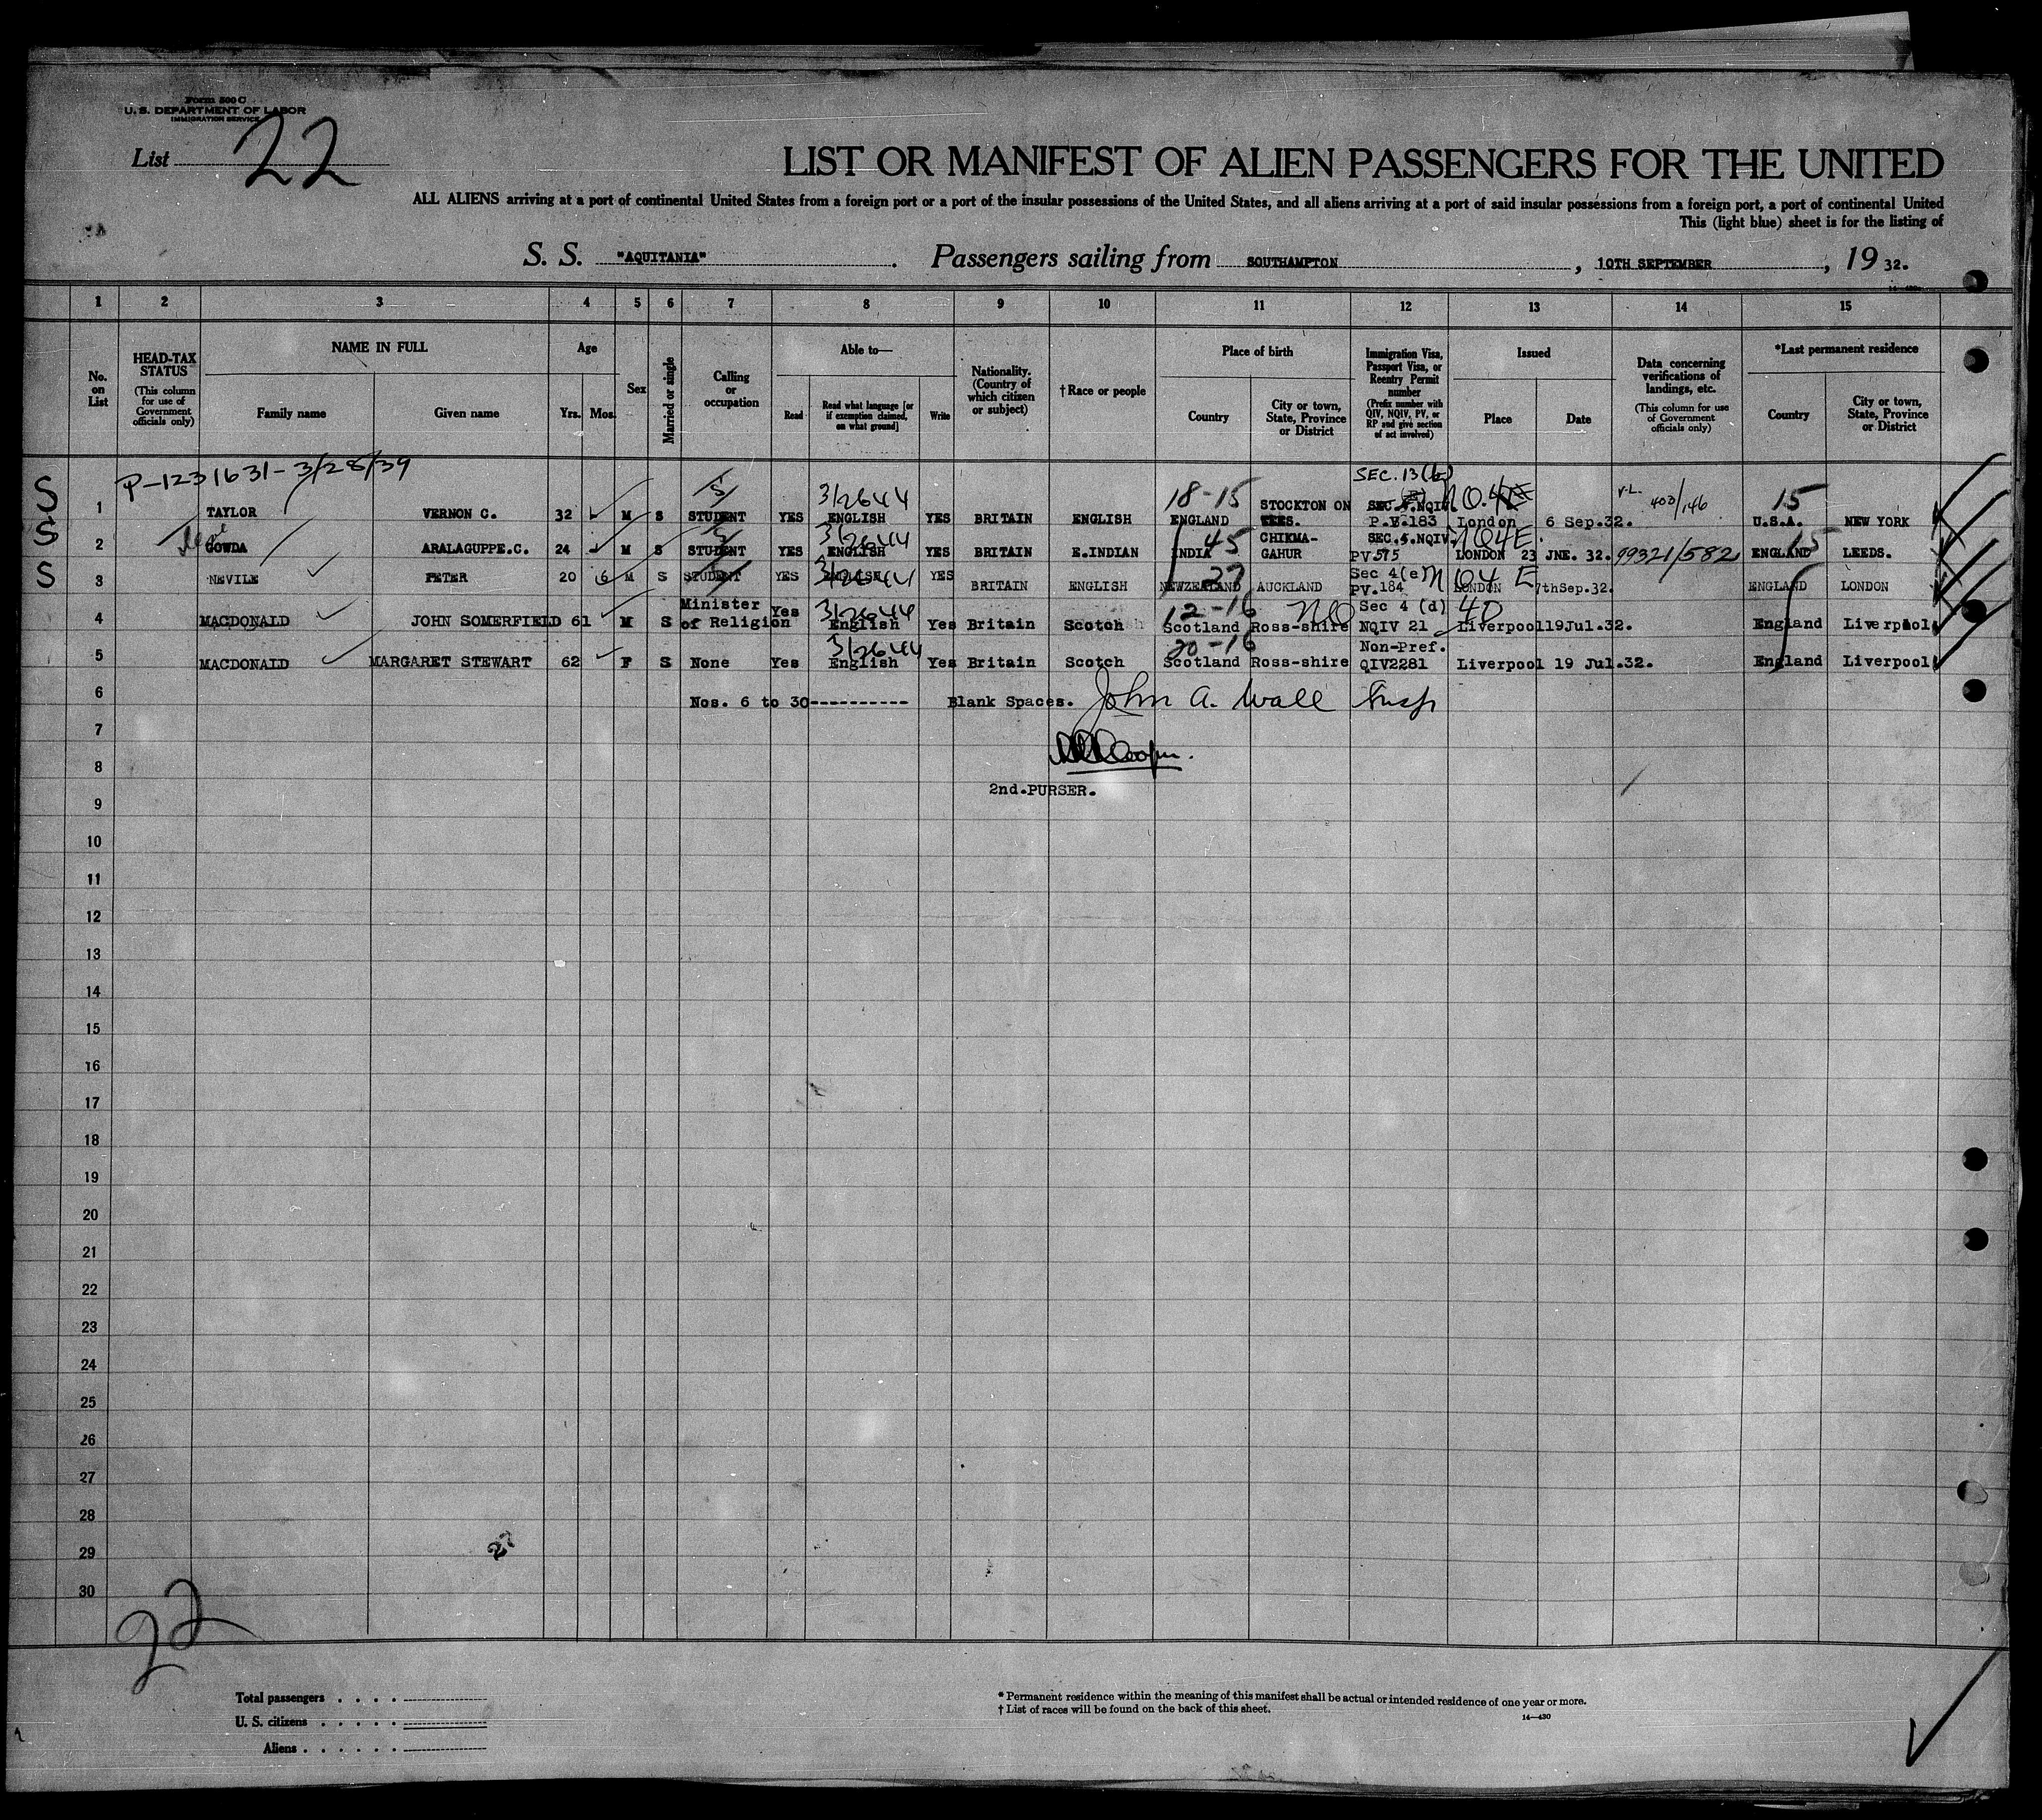 Form 500 C
U. S. DEPARTMENT OF LABOR
IMMIGRATION SERVICE
List 22
LIST OR MANIFEST OF ALIEN PASSENGERS FOR THE UNITED
ALL ALIENS arriving at a port of continental United States from a foreign port or a port of the insular possessions of the United States, and all aliens arriving at a port of said insular possessions from a foreign port, a port of continental United
This (light blue) sheet is for the listing of
S. S. "AQUITANIA". Passengers sailing from SOUTHAMPTON, 10TH SEPTEMBER, 19 32.
1 2 3 4 5 6 7 8 9 10 11 12 13 14 15
No. on List
HEAD-TAX STATUS (This column for use of Government officials only)
NAME IN FULL
Family name
Given name
Age
Yrs. Mos.
Sex
Married or single
Calling or occupation
Able to—
Read
Read what language [or if exemption claimed, on what ground]
Write
Nationality. (Country of which citizen or subject)
† Race or people
Place of birth
Country
City or town, State, Province or District
Immigration Visa, Passport Visa, or Reentry Permit number (Prefix number with QIV, NQIV, PV, or RP and give section of act involved)
Issued
Place
Date
Data concerning verifications of landings, etc. (This column for use of Government officials only)
*Last permanent residence
Country
City or town, State, Province or District
P-1231631-3/28/39
SEC. 13(b)
S 1 TAYLOR VERNON C. 32 M S STUDENT YES 312644 ENGLISH YES BRITAIN ENGLISH 18-15 ENGLAND STOCKTON ON TEES. P.V.183 London 6 Sep.32. V.L. 403/146 15 U.S.A. NEW YORK
S 2 GOWDA ARALAGUPPE.C. 24 M S STUDENT YES 312644 ENGLISH YES BRITAIN E.INDIAN INDIA 45 CHIKMA-GAHUR SEC.4.NQIV. PV575 NQ4E LONDON 23 JNE. 32. 99321/582 ENGLAND 15 LEEDS.
S 3 NEVILE PETER 20 6 M S STUDENT YES 312644 ENGLISH YES BRITAIN ENGLISH NEWZEALAND 27 AUCKLAND Sec 4(e) PV.184 NQ4E LONDON 7thSep.32. ENGLAND LONDON
4 MACDONALD JOHN SOMERFIELD 61 M S Minister of Religion Yes 312644 English Yes Britain Scotch 12-16 Scotland Ross-shire NQ Sec 4 (d) NQIV 21 4D Liverpool 19Jul.32. England Liverpool.
5 MACDONALD MARGARET STEWART 62 F S None Yes 312644 English Yes Britain Scotch 20-16 Scotland Ross-shire Non-Pref. QIV2281 Liverpool 19 Jul.32. England Liverpool
6 Nos. 6 to 30---------- Blank Spaces. John A. Wall Insp
7
8
2nd.PURSER.
9
10
11
12
13
14
15
16
17
18
19
20
21
22
23
24
25
26
27
28
29
30
22
Total passengers . . . .
U. S. citizens . . . . .
Aliens . . . . . .
* Permanent residence within the meaning of this manifest shall be actual or intended residence of one year or more.
† List of races will be found on the back of this sheet.
14—430